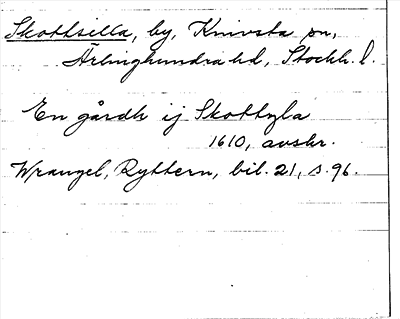 Skottsilla, by, Knivsta sn,
Ärlinghundra hd, Stockh. l.
En gårdh ij Skottzla
1610, avskr.
Wrangel, Ryttern, bil. 21, s. 96.